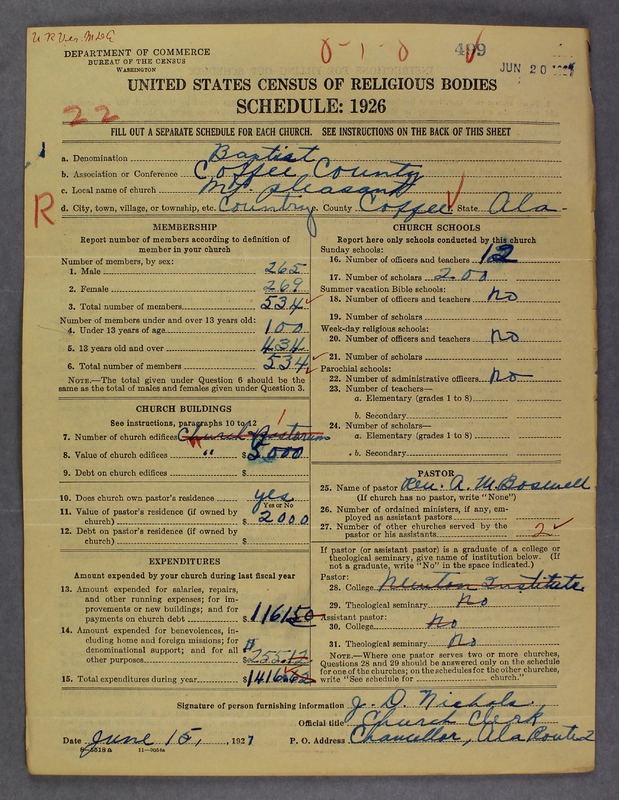 U R Ver. MDG
DEPARTMENT OF COMMERCE
BUREAU OF THE CENSUS
WASHINGTON
8-1-8
499
JUN 20 1927
UNITED STATES CENSUS OF RELIGIOUS BODIES
SCHEDULE: 1926
22
FILL OUT A SEPARATE SCHEDULE FOR EACH CHURCH. SEE INSTRUCTIONS ON THE BACK OF THIS SHEET
a. Denomination Baptist
b. Association or Conference Coffee County
c. Local name of church Mt. pleasant
R
d. City, town, village, or township, etc. Country e. County Coffee State Ala-
MEMBERSHIP
Report number of members according to definition of
member in your church
Number of members, by sex:
1. Male 265
2. Female 269
3. Total number of members 534
Number of members under and over 13 years old:
4. Under 13 years of age 100
5. 13 years old and over 434
6. Total number of members 534
NOTE.—The total given under Question 6 should be the
same as the total of males and females given under Question 3.
CHURCH BUILDINGS
See instructions, paragraphs 10 to 12
1
7. Number of church edifices Church Pastorums
8. Value of church edifices " $5000
9. Debt on church edifices $
10. Does church own pastor's residence yes
Yes or No
11. Value of pastor's residence (if owned by
church) $2000
12. Debt on pastor's residence (if owned by
church) $
EXPENDITURES
Amount expended by your church during last fiscal year
13. Amount expended for salaries, repairs,
and other running expenses; for im-
provements or new buildings; and for
payments on church debt $116150
14. Amount expended for benevolences, in-
cluding home and foreign missions; for
denominational support; and for all
other purposes $25512
15. Total expenditures during year $141662
CHURCH SCHOOLS
Report here only schools conducted by this church
Sunday schools:
16. Number of officers and teachers 12
17. Number of scholars 200
Summer vacation Bible schools:
18. Number of officers and teachers no
19. Number of scholars
Week-day religious schools:
20. Number of officers and teachers no
21. Number of scholars
Parochial schools:
22. Number of administrative officers no
23. Number of teachers—
a. Elementary (grades 1 to 8)
b. Secondary
24. Number of scholars—
a. Elementary (grades 1 to 8)
b. Secondary
PASTOR
25. Name of pastor Rev. A. M. Boswell
(If church has no pastor, write "None")
26. Number of ordained ministers, if any, em-
ployed as assistant pastors
27. Number of other churches served by the
pastor or his assistants 2
If pastor (or assistant pastor) is a graduate of a college or
theological seminary, give name of institution below. (If
not a graduate, write "No" in the space indicated.)
Pastor:
28. College Newton Institute
29. Theological seminary No
Assistant pastor:
30. College No
31. Theological seminary No
NOTE.—Where one pastor serves two or more churches,
Questions 28 and 29 should be answered only on the schedule
for one of the churches; on the schedules for the other churches,
write "See schedule for church."
Signature of person furnishing information J. D. Nichols
Official title Church Clerk
Date June 15, 1927 P. O. Address Chancellor, Ala Route 2
8-5518a 11-7054a